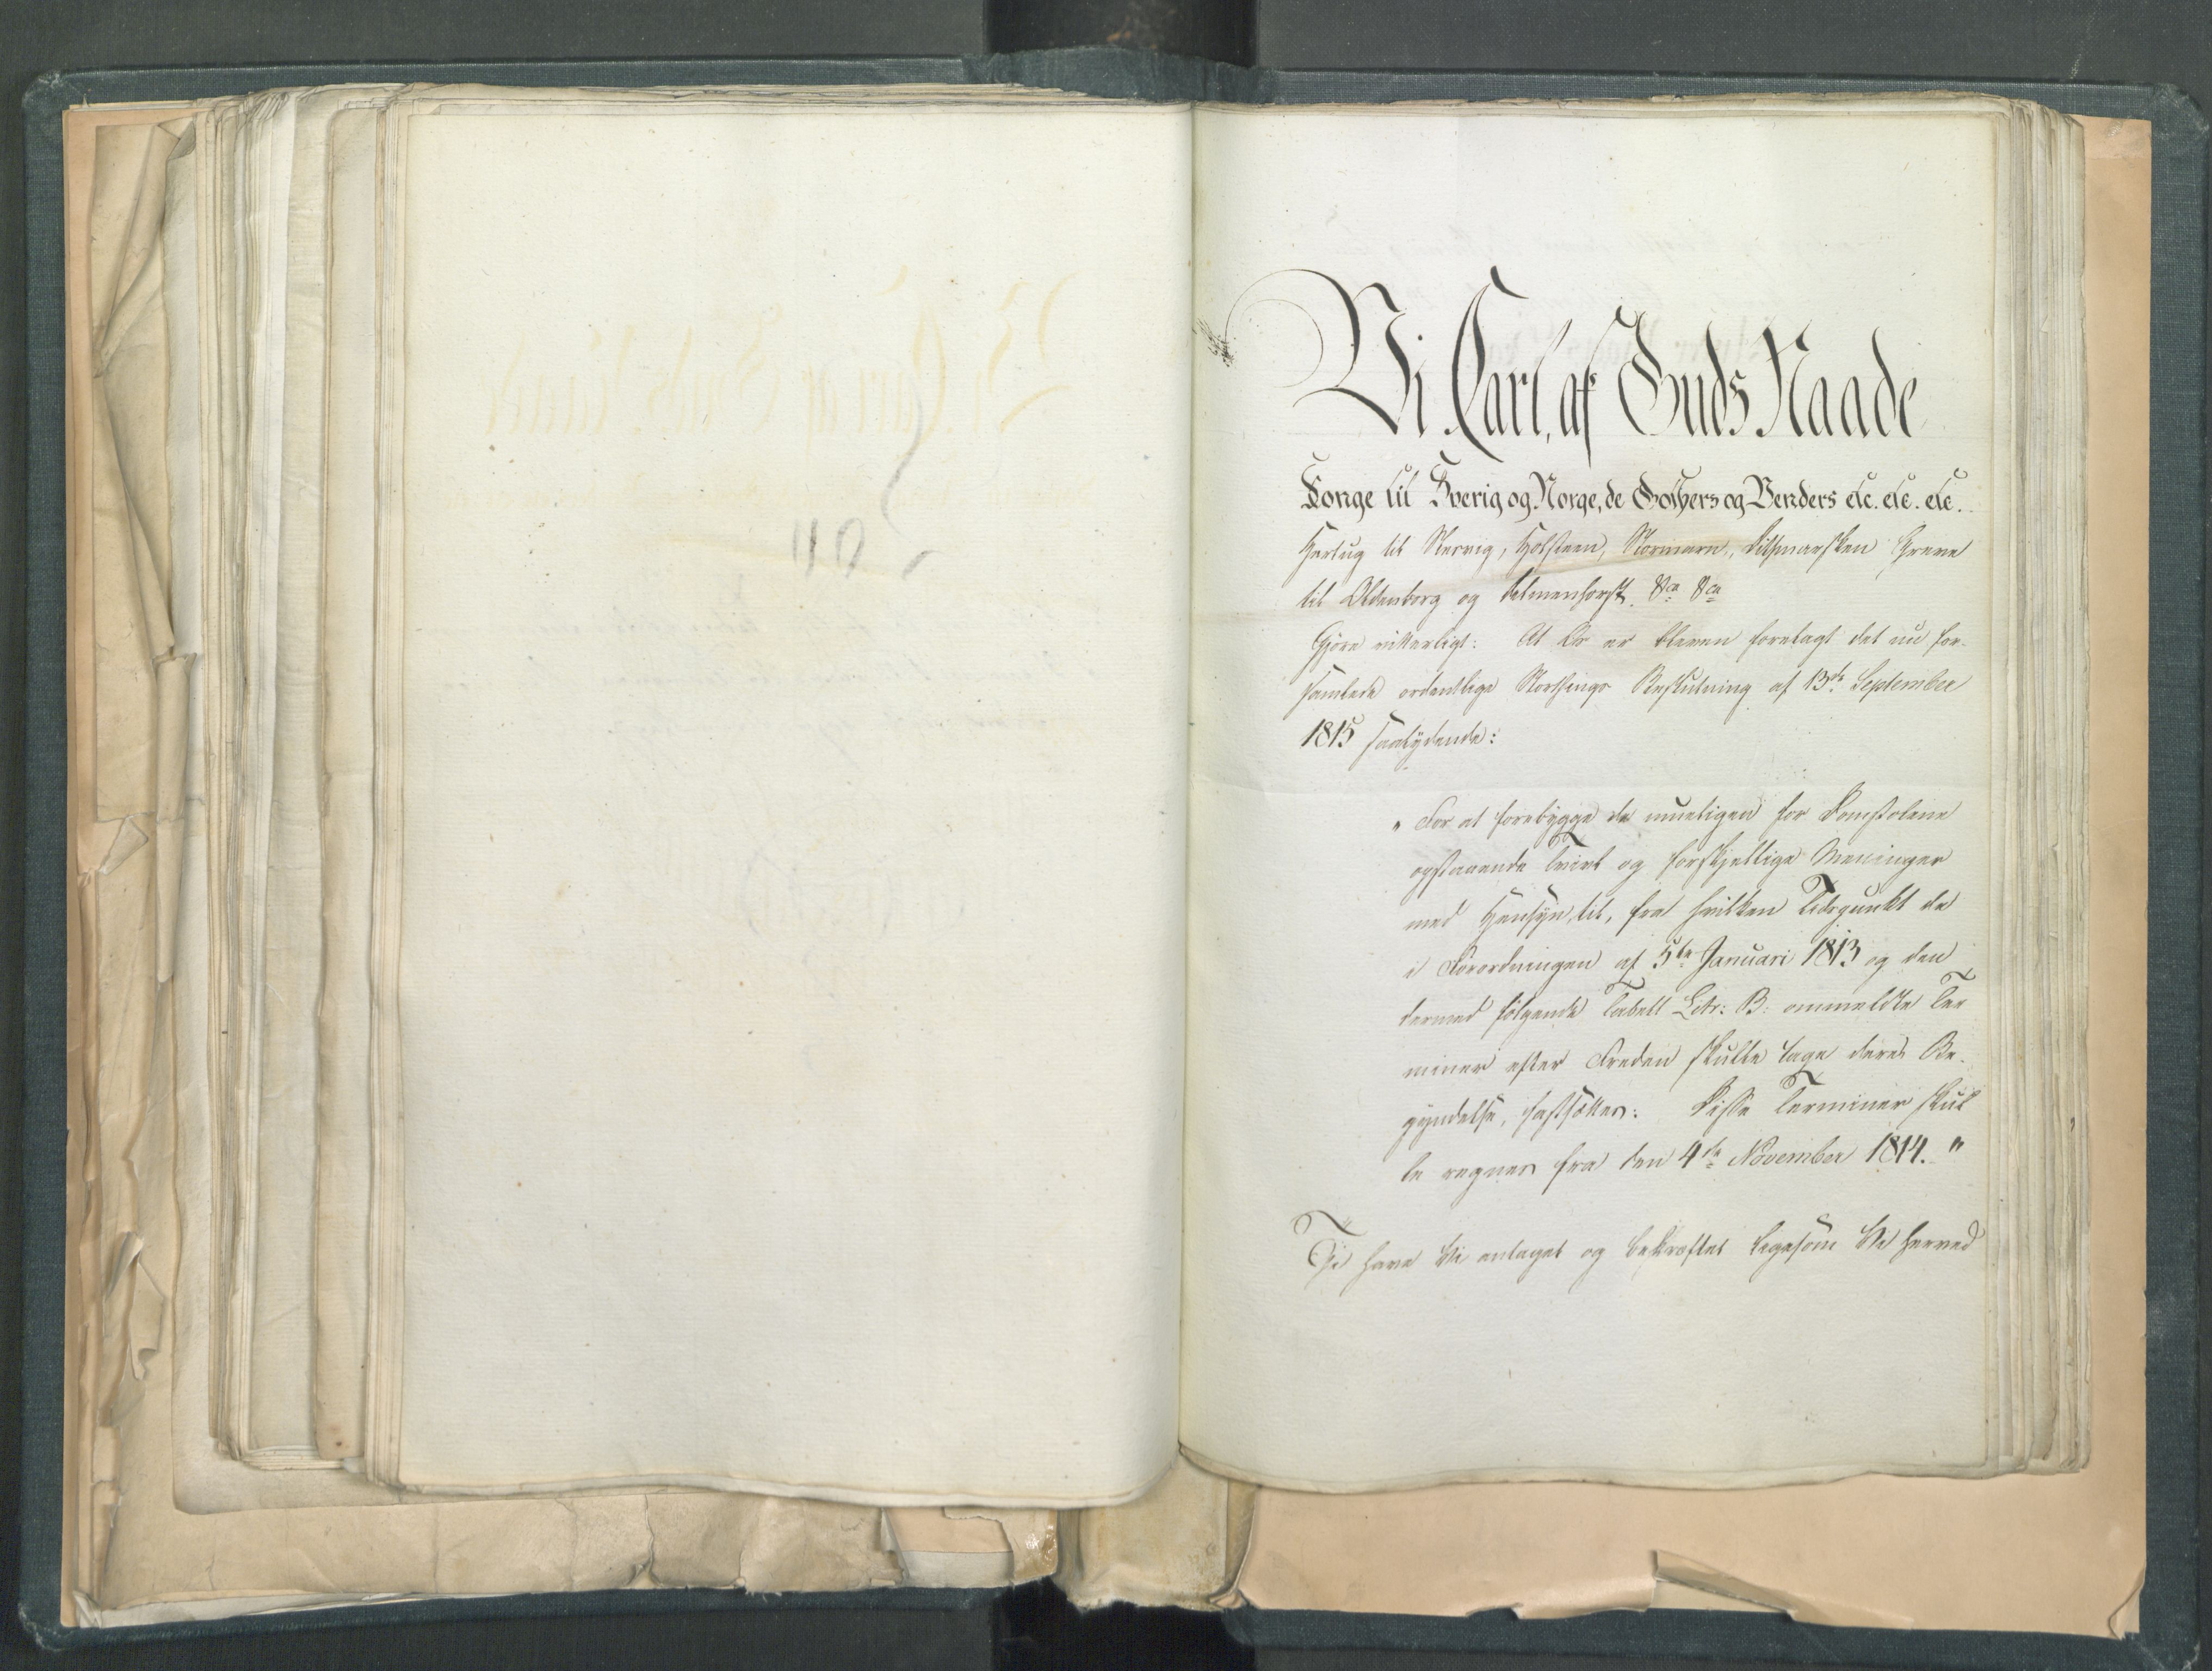 Vi Carl, af Guds Naade
Konge til Sverig og Norge, de Gothers og Venders etc. etc. etc.
Hertug til Slesvig, Holsteen, Stormarn, Ditmarsken Greve
til Oldenborg og Delmenhorst &ca &ca
Gjøre vitterligt: At Os er bleven forelagt det nu for-
samlede ordentlige Storthings Beslutning af 13de September
1815 saalydende:
" For at forebygge de mueligen for Domstolene
opstaaende Tvivl og forskjellige Meninger
med Hensyn til, fra hvilken Tidspunkt de
i Forordningen af 5te Januari 1813 og den
dermed følgende Tabell Litr: B: ommeldte Ter
miner efter Freden skulle tage deres Be-
gyndelse, fastsættes: Disse Terminer skul
le regnes fra den 4de November 1814. "
Thi have Vi antaget og bekræftet ligesom Vi herved